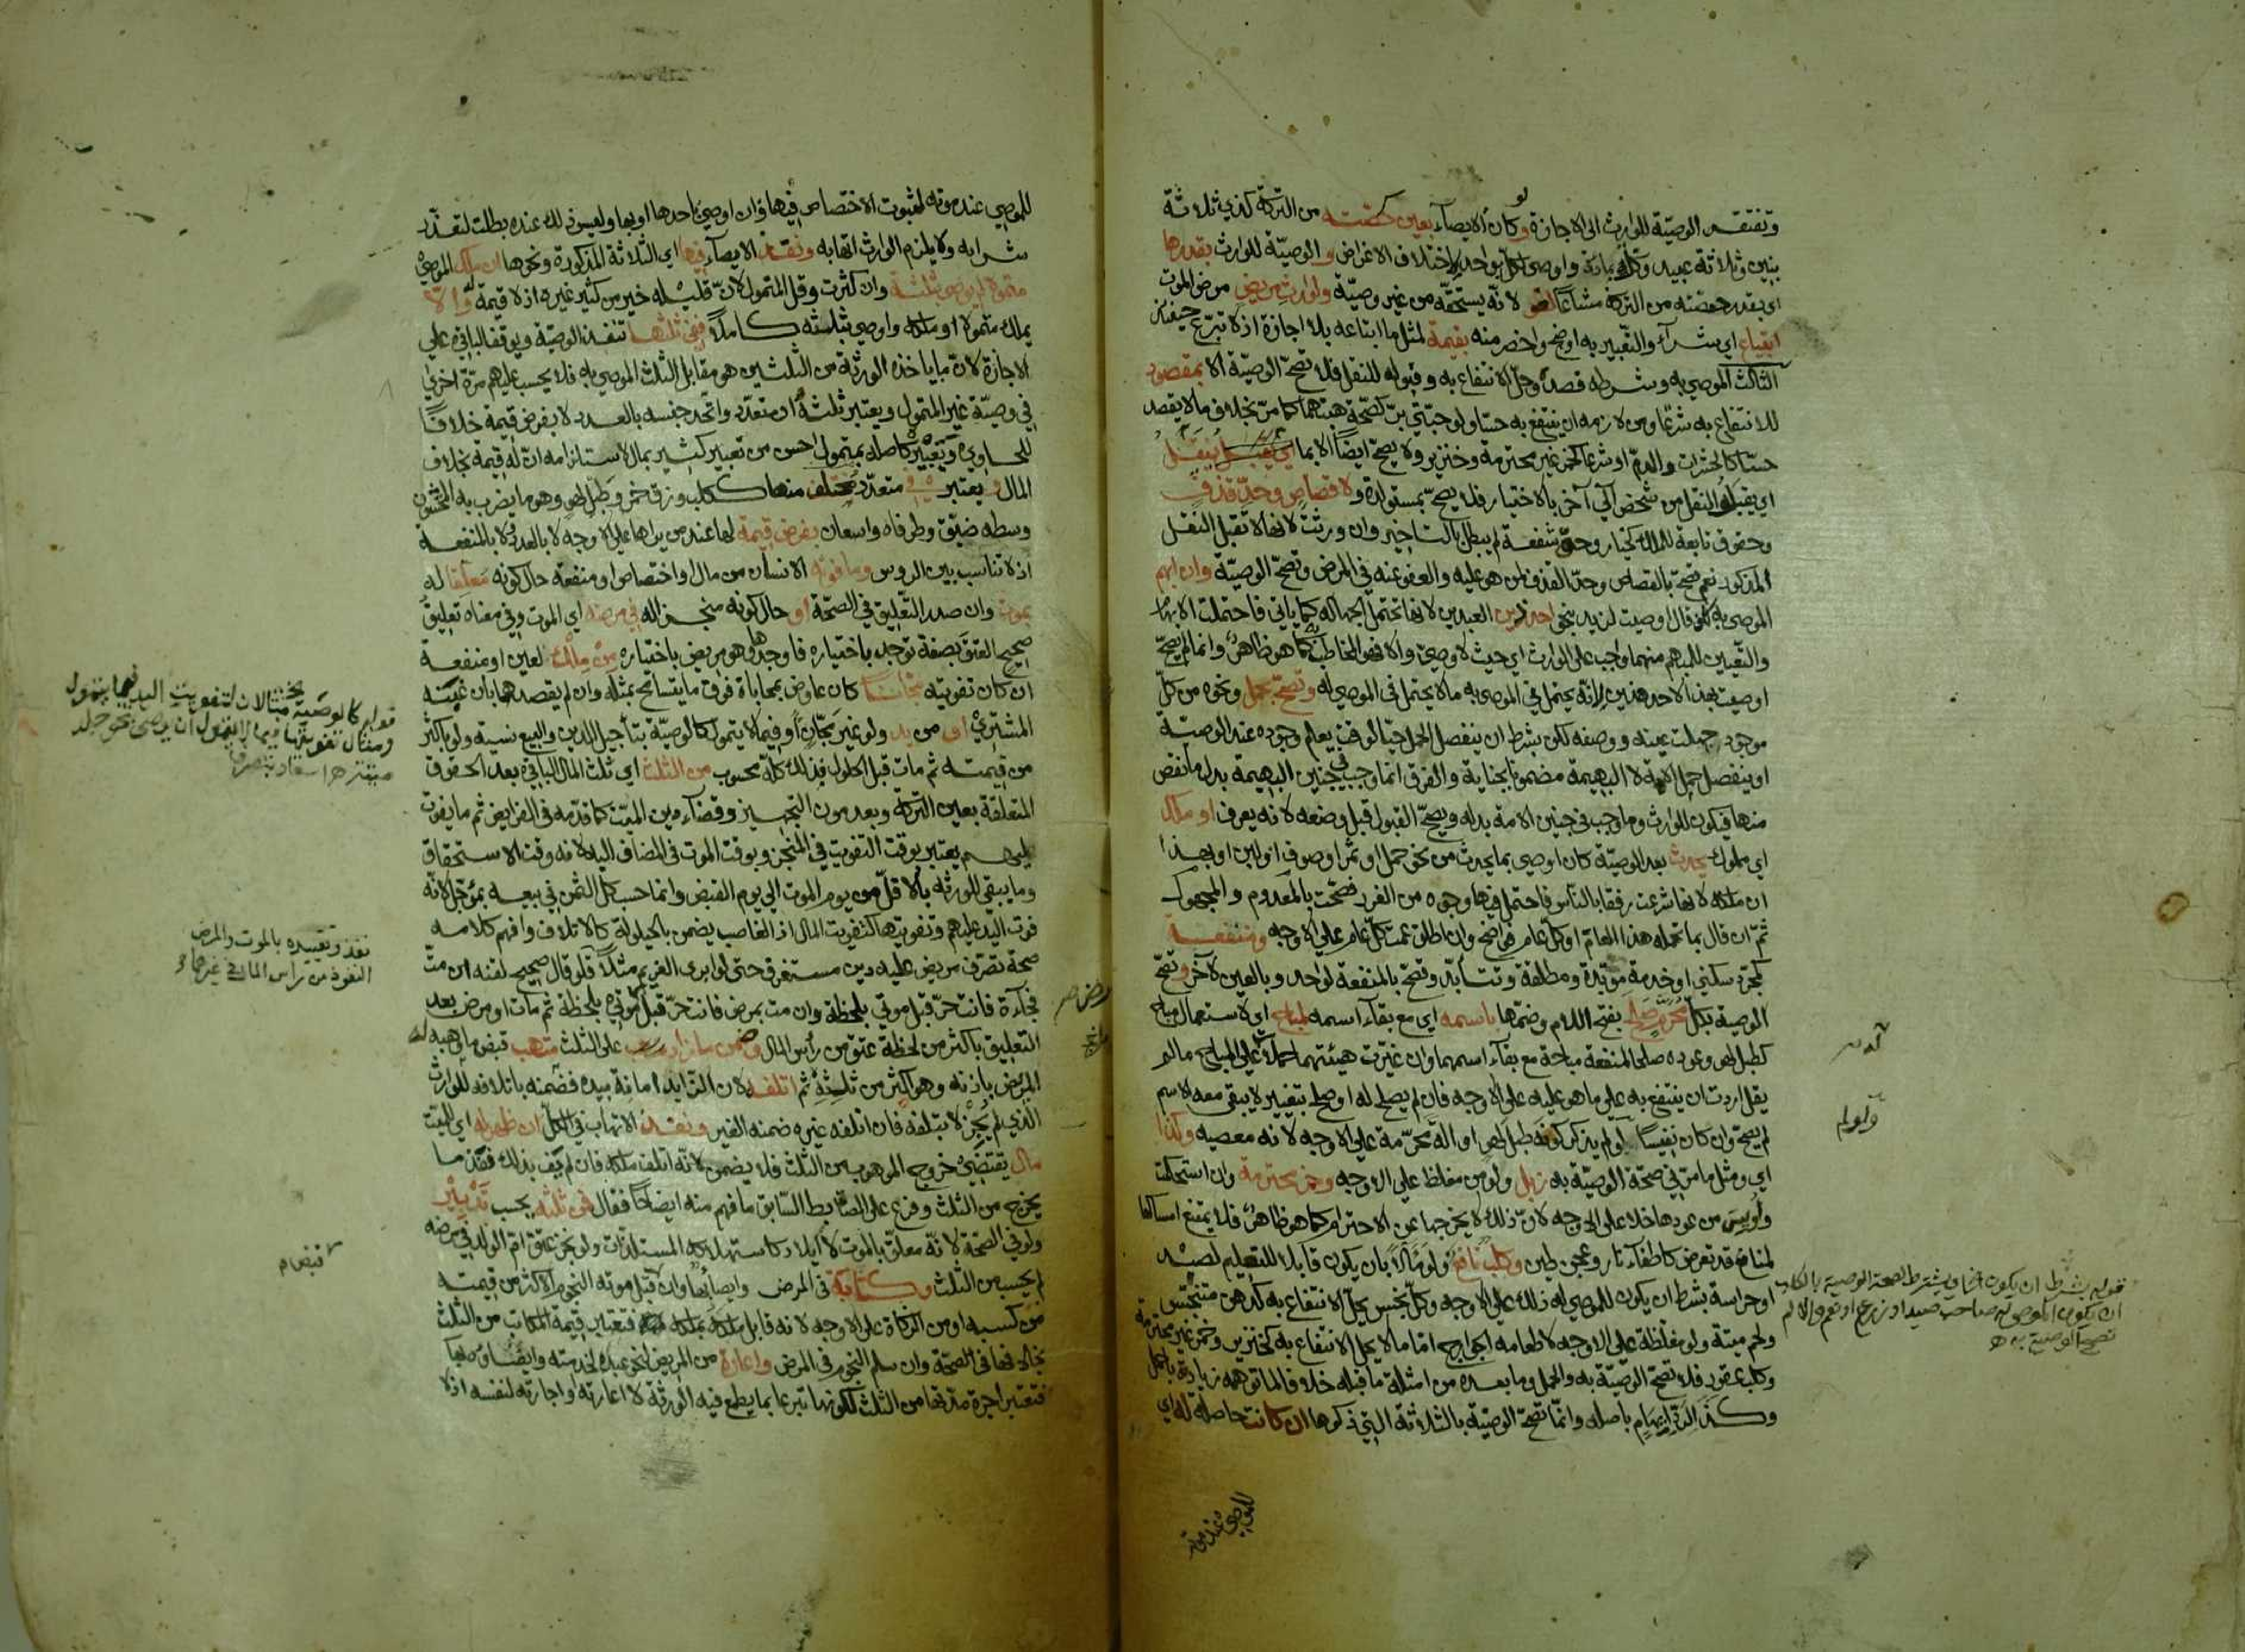 وتفتقد الوصيّة للوارث الى الاجازة ولو كان الايصآء بعين حصّته من التركة كذي ثلاثة
بنين وثلاثة عبيد وكلّه بارة واوصى لكلّ بواحد لاختلاف الاغراض والوصيّة للوارث بقدرها
اي بقدر حصّته من التركة مشاعًا لغو لانّه يستحقّه من غير وصيّة ولوارث مريض مرض الموت
ابتياع اي شرآء والتّعبير به اوضح واخصر منه بقيمة لمثل ما ابتاعه بلا اجازة اذ لا تبرّع حينئذ
الثالث الموصى به وشرطه قصده وحلّ الانتفاع به وقبوله للنقل فلا تصحّ الوصيّة الا بمقصود
للانتفاع به شرعًا ومن لازمه ان ينتفع به حسّا ولو حبّتي برّ لصحّة هبتهما كما مرّ بخلاف ما لا يقصد
حسّا كالحشرات والدم او شرعا كخمر غير محترمة وخنزير ولا يصحّ ايضًا الا بما يُنقل
اي يقبل النقل من شخص الى آخر بالاختيار فلا يصحّ بمستولدة ولا قصاص وحدّ قذف
وحقوق تابعة للملك كخيار وحقّ شفعة لم يبطل بالتاخير وان ورثت لانها لا تقبل النقل
المذكور نعم تصحّ بالقصاص وحدّ القذف لمن هو عليه والعفو عنه في المرض وتصحّ الوصيّة وان ابهم
الموصى به كان قال اوصيت لزيد بنحو احد ذين العبدين لانها تحتمل الجهالة كما ياتي فاحتملت الابهام
والتّعيين للمبهم منهما واجب على الوارث اي حيث لا وصيّ والا فهو المخاطب به كما هو ظاهر وانما لم يصحّ
اوصيت بهذا لاحد هذين لانّه يحتمل في الموصى به ما لا يحتمل في الموصى له وتصحّ بحمل ونحوه من كلّ
موجود جهلت عينه ووصفه لكن بشرط ان ينفصل الحمل حيّا لوقت يعلم وجوده عند الوصيّة
او ينفصل حمل الامة لا البهيمة مضمونا بجناية والفرق انما وجب في جنين البهيمة بدل ما نقص
منها فيكون للوارث وما وجب في جنين الامة بدله ويصحّ القبول قبل وضعه لانه يعرف او ملك
اي مملوك يحدث بعد الوصيّة كان اوصى بما يحدث من نحو حمل او ثمر او صوف او لبن او بهذا
ان ملكه لانها شرعت رفقا بالناس فاحتمل فيها وجوه من الغرر فصحّت بالمعدوم والمجهول
ثمّ ان قال بما تحمله هذا العام او كلّ عام فواضح وان اطلق عمّت كلّ عام على الاوجه ومنفعة
كمجرّد سكنى او خدمة مؤبّدة ومطلقة وتتأبّد وتصحّ بالمنفعة لواحد وبالعين لآخر وتصحّ
الوصية بكلّ محرّم صلح بفتح اللام وضمّها باسمه اي مع بقآء اسمه لمباح اي لاستعمال مباح
كطبل لهو وعوده صلحا لمنفعة مباحة مع بقآء اسمهما وان غيّرت هيئتهما حملا على المباح ما لم
يقل اردت ان ينتفع به على ما هو عليه على الاوجه فان لم يصلح له او صلح بتغيير لا يبقى معه الاسم
لم يصحّ وان كان نفيسًا لو لم يذكر كونه طبل لهو او آلة محرّمة على الاوجه لانه معصية وكذا
اي ومثل ما مرّ في صحّة الوصيّة به زبل ولو من مغلظ على الاوجه وخمر محترمة وان استحكمت
وأيس من عودها خلا على الاوجه لانّ ذلك لا يخرجها عن الاحترام كما هو ظاهر فلا يمتنع امساكها
لمنافع قد تعرض كاطفآء نار وعجن طين وكلب نافع ولو مآلا بان يكون قابلا للتعليم لصيد
او حراسة بشرط ان يكون للموصى له ذلك على الاوجه وكلّ نجس يحلّ الانتفاع به كدهن متنجّس
ولحم ميتة ولو مغلّظة على الاوجه لاطعامه الجوارح امّا ما لا يحل الانتفاع به كخنزير وخمر غير محترمة
وكلب عقور فلا تصحّ الوصيّة به والحمل وما بعده من امثلة ما قبله خلافا لما توهمه زيادته باكمل
وكذا لدرّ ايهام باصله وانّما تصحّ الوصيّة بالثلاثة التي ذكرها ان كانت حاصلة له اي
للموصي عند موته
قوله بشرط ان يكون ويشترط لصحة الوصية بالكلب
ان يكون الموصى له صاحب صيد او زرع او نعم والا لم
تصح الوصية به
للموصي عند موته لثبوت الاختصاص فيها وان اوصى باحدها او بها وليس ذلك عنده بطلت لتعذّر
شرائه ولا يلزم الوارث اتّهابه ونفذ الايصآء فيها اي الثلاثة المذكورة ونحوها ان ملك الموصي
متموّلا لم يوص بثلثه وان كثرت وقلّ المتموّل لانّ قليله خير من كثير غيره اذ لا قيمة له والا
يملك متمولا او ملكه واوصى بثلثه كاملًا ففي ثلثها تنفذ الوصيّة ويوقف الباقي على
الاجازة لانّ ما ياخذه الورثة من الثلثين هو مقابل الثلث الموصى به فلا يحسب عليهم مرّة اخرى
في وصيّة غير المتمول ويعتبر ثلثه او متعدّد واتّحد جنسه بالعدد لا بفرض قيمة خلافًا
للحاوي وتعبير كاصله بمتمول احسن من تعبير كثير بمال لاستلزامه انّ له قيمة بخلاف
المال ويعتبر في متعدّد مختلف منها ككلب وزق خمر وطبل لهو وهو ما يضرب به المخنثون
وسطه ضيّق وطرفاه واسعان بفرض قيمة لها عند من يراها على الاوجه لا بالعدد ولا بالمنفعة
اذ لا تناسب بين الروس وما فوّته الانسان من مال او اختصاص او منفعة حال كونه معلّقا له
بموت وان صدر التّعليق في الصحّة او حال كونه منجزا له في مرضه اي الموت وفي معناه تعليق
صحيح العتق بصفة توجد باختياره فاوجدها وهو مريض باختياره من ملك لعين او منفعة
ان كان تفويته مجّانًا كان عاوض بمحاباة فوق ما يتسامح بمثله وان لم يقصدها بان غبنه
المشتري او من يد ولو غير مجّان وفيما لا يتمول كالوصيّة بتأجيل الدين والبيع نسية ولو باكثر
من قيمته ثم مات قبل الحلول فذلك كلّه محسوب من الثلث اي ثلث المال الباقي بعد الحقوق
المتعلقة بعين التركة وبعد مون التجهيز وقضآء دين الميّت كما قدّمه في الفرايض ثم ما يفوت
عليهم يعتبر بوقت التفويت في المنجز وبوقت الموت في المضاف اليه لانه وقت الاستحقاق
وما يبقي للورثة بالاقلّ من يوم الموت الى يوم القبض وانما حسب كل الثمن في بيعه بمؤجّل لانّه
فوت اليد عليهم وتفويتها كتفويت المال اذ الغاصب يضمن بالحيلولة كالاتلاف وافهم كلامه
صحة تصرّف مريض عليه دين مستغرق حتى لو ابرى الغريم مثلًا فلو قال صحيح لقنه ان متّ
فجآءة فانت حرّ قبل موتي بلحظة وان مت بمرض فانت حرّ قبل موتي بلحظة ثم مات او مرض بعد
التعليق باكثر من لحظة عتق من رأس المال وضمن ما زاد على الثلث متّهب قبض ما وهبه له
المريض باذنه وهو اكثر من ثلثه ثم اتلفه لان الزايد امانة بيده فضمنه باتلافه للوارث
الذي لم يجز لا بتلفه فان اتلفه غيره ضمنه الغير ونفذ الاتهاب في الكلّ ان ظهر له اي للميّت
مال يقتضي خروج الموهوب من الثلث فلا يضمن لانه اتلف ملكه فان لم يف بذلك فقدر ما
يخرج من الثلث وفرع على الضابط السّابق ما فهم منه ايضاحًا فقال فمن ثلثه يحسب تدبير
ولو في الصحّة لانّه معلّق بالموت لا ايلاد كاستهلاكه المستلذّات ولو نجز عتق امّ الولد في مرضه
لم يحسب من الثلث وكتابة في المرض وايصاء بها وان قبل موته النجوم لاكثر من قيمته
من كسبه او من الزكاة على الاوجه لانه قابل ملكه بملكه فتعتبر قيمة المكاتب من الثلث
بخلافها في الصحّة وان سلم النجوم في المرض واعارة من المريض لنحو عبده لخدمته وايضا منها
فتعتبر اجرة مدّتها من الثلث لكونها تبرعا بما يطمع فيه الورثة لا اعارته او اجارته لنفسه اذ لا
قوله كالوصية مثالان لتفويت اليد فيما يتمول
ومثال تفويتها فيما لا يتمول ان يوصي بنحو جلد
نفذ وتقييده بالموت والمرض
النفوذ من رأس المال في غيرهما
قبض م